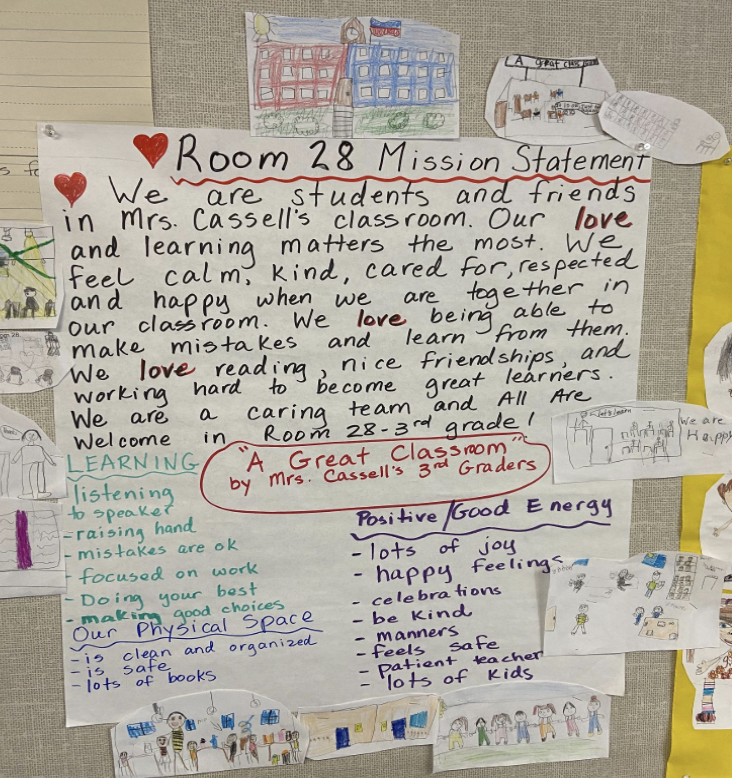 A great class
Room 28 Mission Statement
We are students and friends
in Mrs. Cassell's classroom. Our love
and learning matters the most. We
feel calm, kind, cared for, respected
and happy when we are together in
our classroom. We love being able to
make mistakes and learn from them.
We love reading, nice friendships, and
working hard to become great learners.
We are a caring team and All Are
Welcome in Room 28-3rd grade!
"A Great Classroom"
by Mrs. Cassell's 3rd Graders
LEARNING
listening
to speaker
- raising hand
- mistakes are ok
- focused on work
- Doing your best
- making good choices
Our Physical Space
- is clean and organized
- is safe
- lots of books
Positive/Good Energy
- lots of joy
- happy feelings
- celebrations
- be kind
- manners
- feels safe
- patient teacher
- lots of kids
lets learn
We are
Happy